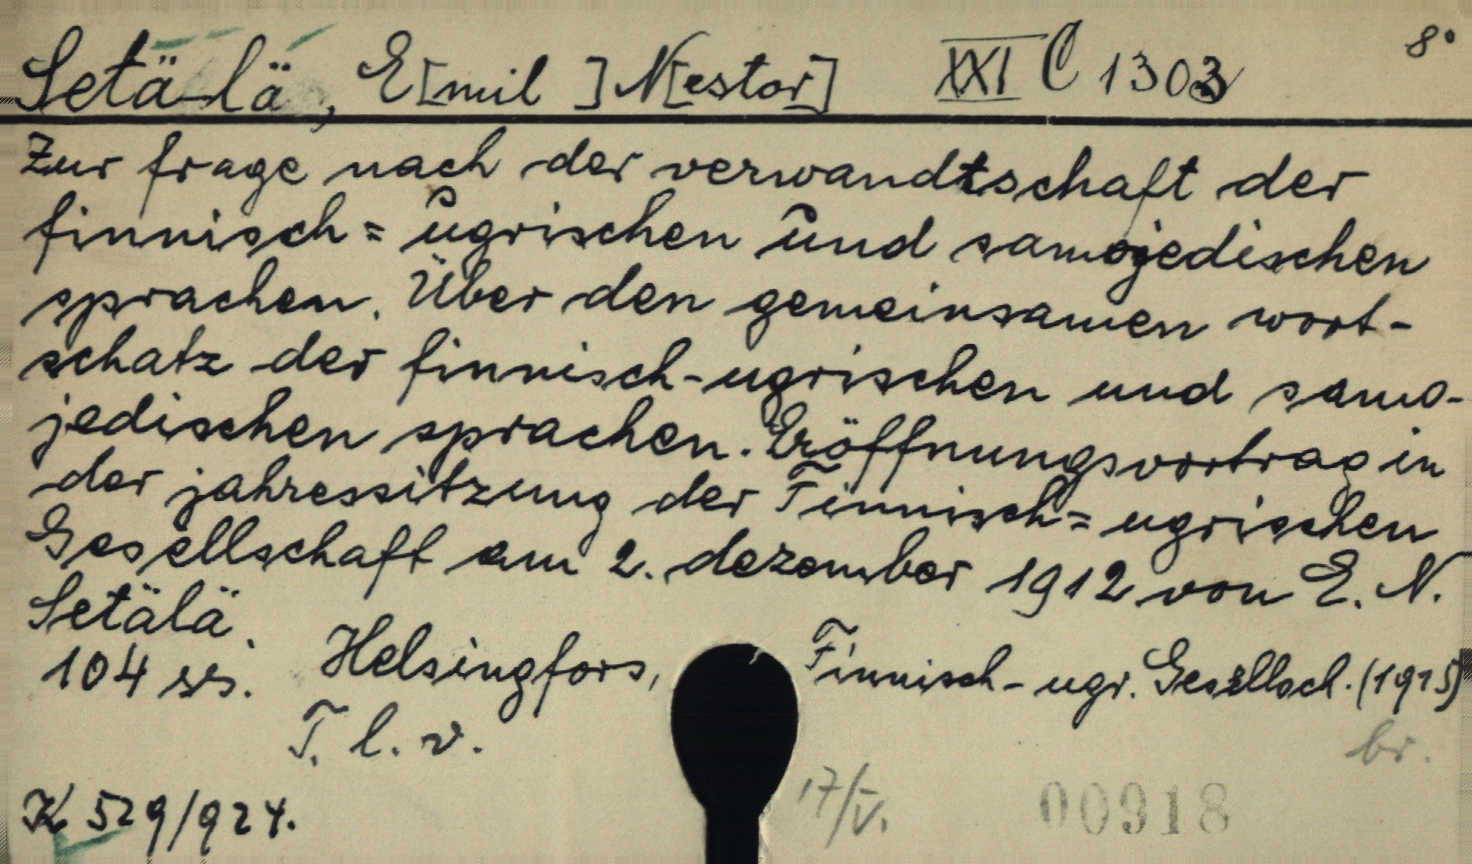 Setälä, E[mil] N[estor] XXI C 1303 8°
Zur frage nach der verwandtschaft der
finnisch=ugrischen und samojedischen
sprachen. Über den gemeinsamen wort-
schatz der finnisch-ugrischen und samo-
jedischen sprachen. Eröffnungsvortrag in
der jahressitzung der Finnisch=ugrischen
Gesellschaft am 2. dezember 1912 von E. N.
Setälä.
104 si. Helsingfors, Finnisch-ugr. Gesellsch. (1915)
T. l. v. br.
K 529/924. 17/V. 00918